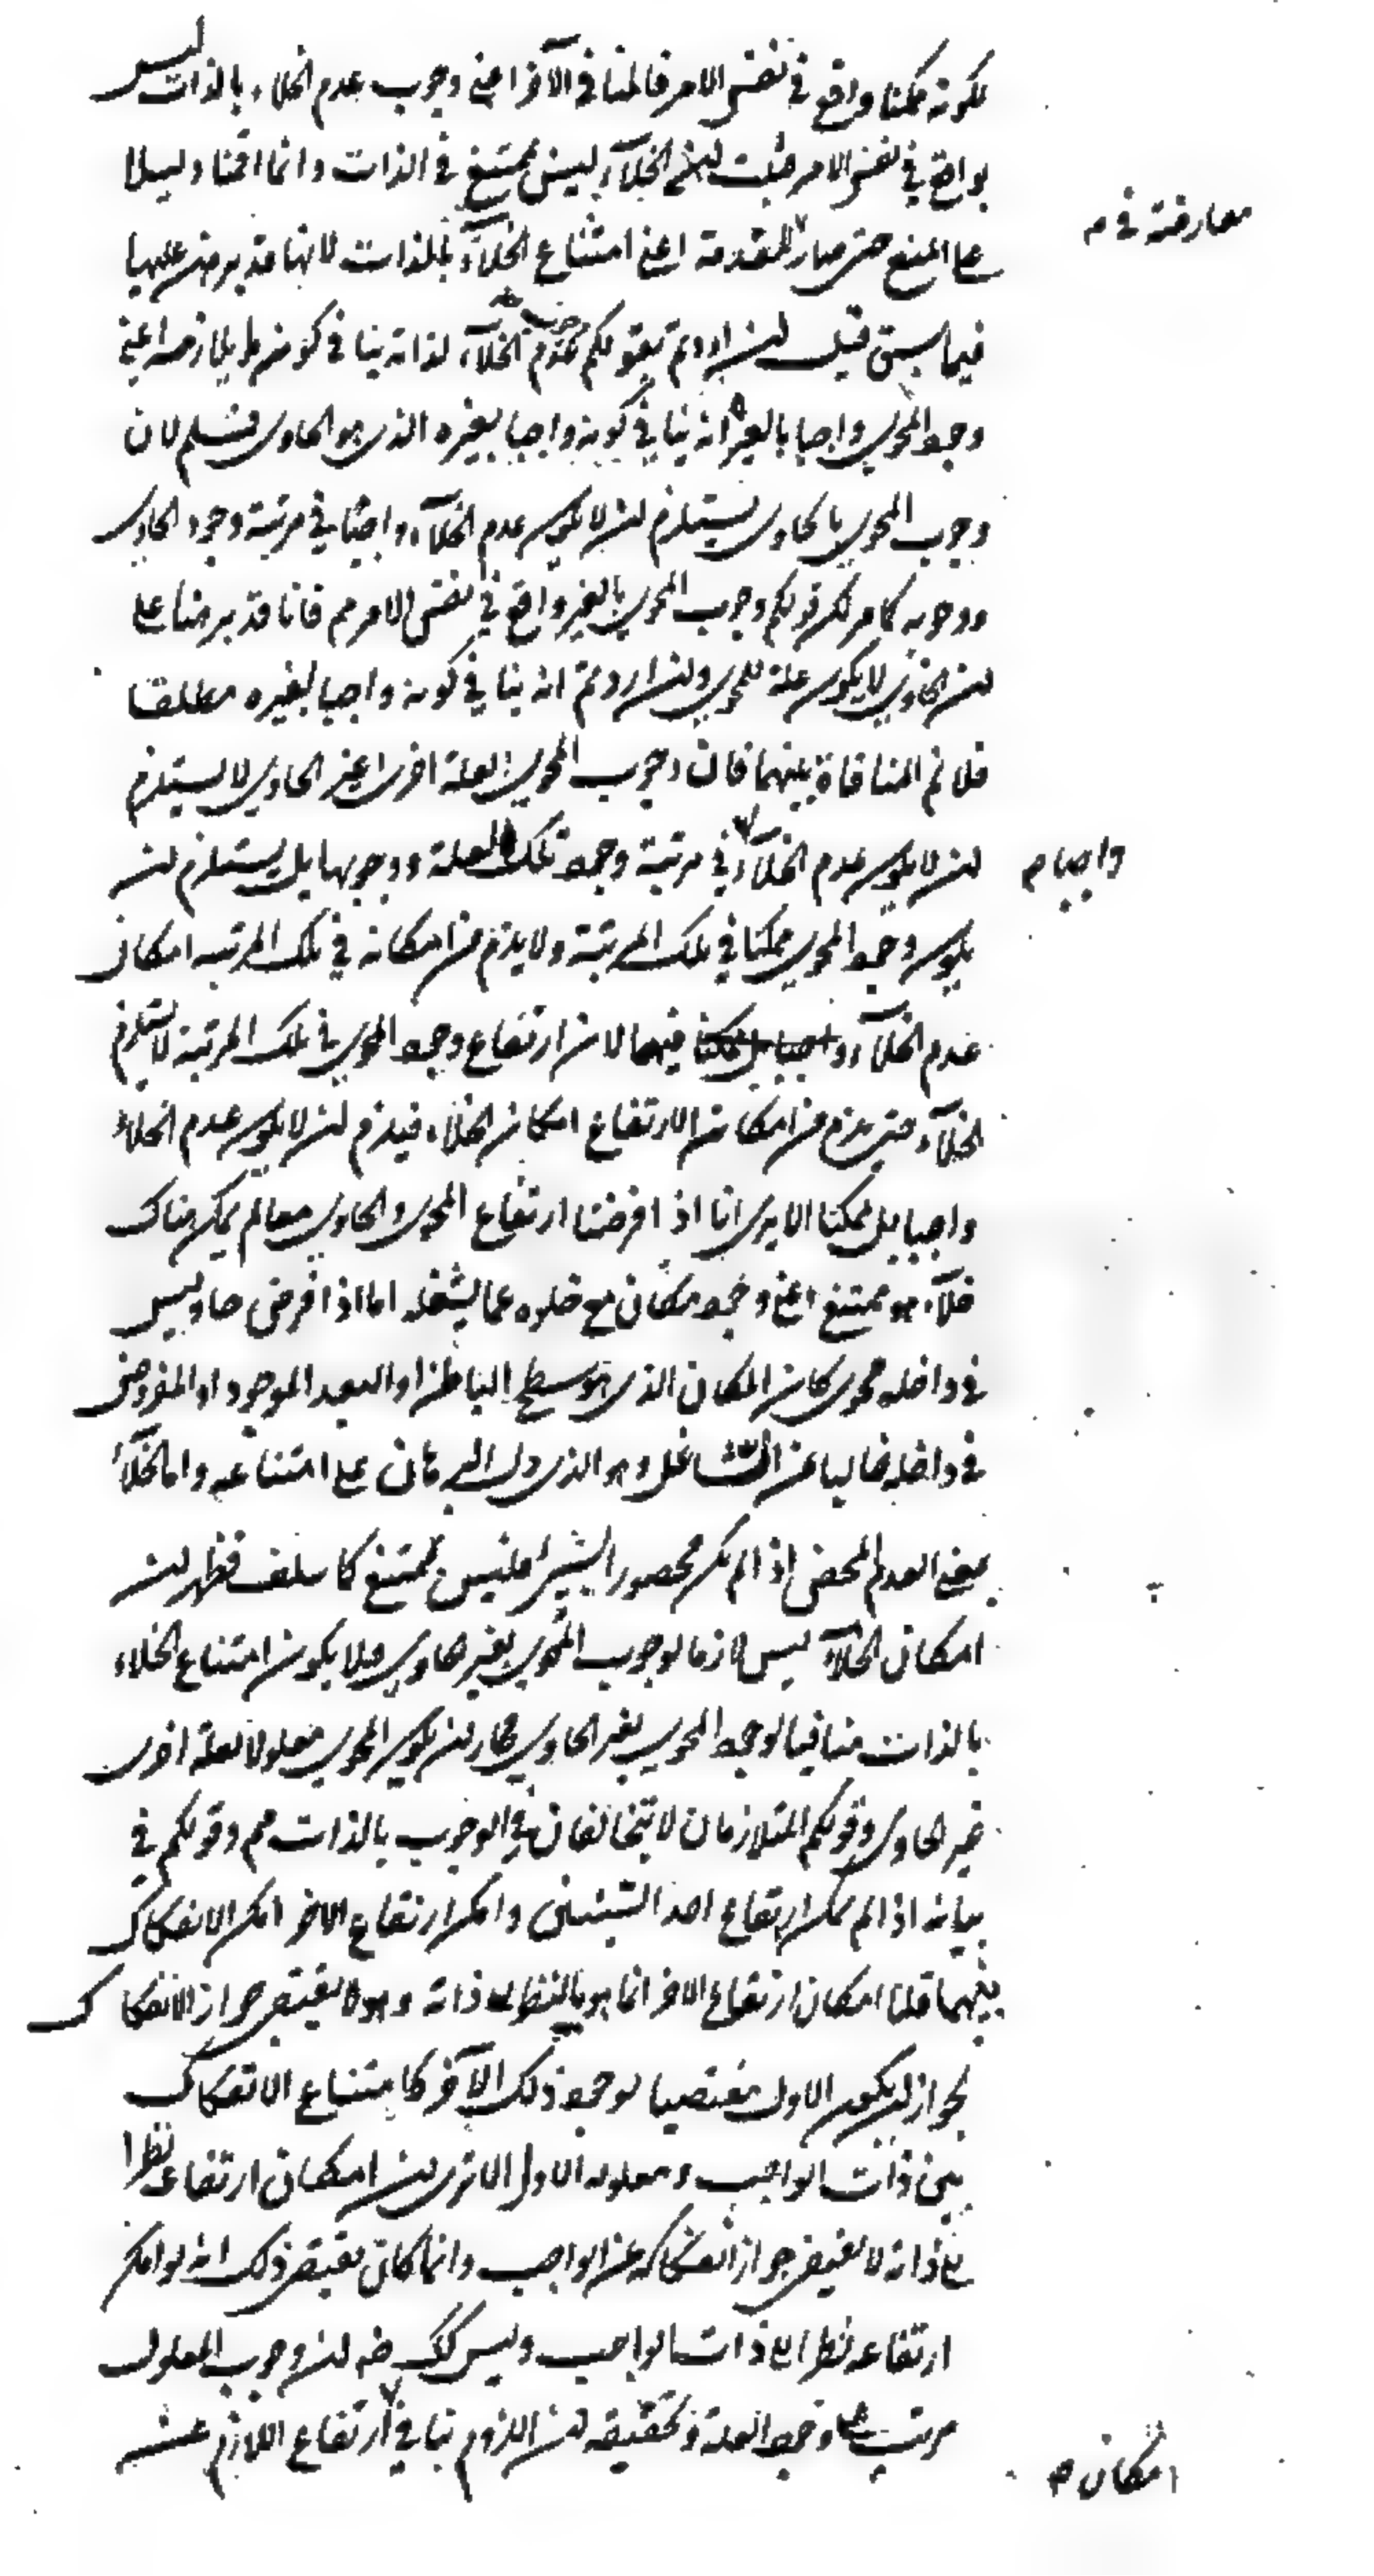 لكونه ممكنا واقع في نفس الامر فالمنافي الآخر اعني وجوب عدم الخلاء بالذات ليس
بواقع في نفس الامر فثبت ان الخلآء ليس بممتنع في الذات وانما اقمنا دليلا
على المنع حتى صار للمقدمة اعني امتناع الخلآء بالذات لانها قد برهن عليها
معارضة في م
فيما سبق قيل ان اردتم بقولكم عدم الخلآء لذاته ينافي كونه ما يلازمه اعني
وجود المحوي واجبا بالغير انه ينافي كونه واجبا بغيره الذي هو الحاوي فمسلم لان
وجوب المحوي بالحاوي يستلزم ان لا يكون عدم الخلآء واجبا في مرتبة وجود الحاوي
ووجوبه كما مر لكن قولكم وجوب المحوي بالغير واقع في نفس الامر مم فانا قد برهنا على
ان الحاوي لا يكون علة للمحوي وان اردتم انه ينافي كونه واجبا لغيره مطلقا
فلا نم المنافاة بينهما فان وجوب المحوي بعلة اخرى غير الحاوي لا يستلزم
ان لا يكون عدم الخلآء في مرتبة وجود تلك العلة ووجوبها بل يستلزم ان
واجبا م
يكون وجود المحوي ممكنا في تلك المرتبة ولا يلزم من امكانه في تلك المرتبه امكان
عدم الخلآء واجبا بل ممكنا فيها لان ارتفاع وجود المحوي في تلك المرتبة لا يستلزم
الخلآء حتى يلزم من امكان الارتفاع امكان الخلاء فيلزم ان لا يكون عدم الخلاء
واجبا بل ممكنا الا يرى انا اذا فرضنا ارتفاع المحوي والحاوي معا لم يكن هناك
خلآء هو ممتنع اعني وجود مكان مع خلوه عما يشغله اما اذا فرض حاو ليس
في داخله محوي كان المكان الذي هو سطح الباطن او البعد الموجود او المفروض
في داخله خاليا عن الشاغل وهو الذي دل البرهان على امتناعه واما الخلآء
بمعنى العدم المحض اذا لم يكن محصورا لشيء فليس بممتنع كما سلف فظهر ان
امكان الخلآء ليس لازما لوجوب المحوي بغير حاوي فلا يكون امتناع الخلاء
بالذات منافيا لوجود المحوي بغير الحاوي فجاز ان يكون المحوي معلولا لعلة اخرى
غير الحاوي وقولكم المتلازمان لا يتخالفان في الوجوب بالذات مم وقولكم في
بيانه اذا لم يمكن ارتفاع احد الشيئين وامكن ارتفاع الاخر امكن الانفكاك
بينهما قلنا امكان ارتفاع الاخر انما هو بالنظر الى ذاته وهو لا يقتضي جواز الانفكاك
لجواز ان يكون الاول مقتضيا لوجود ذلك الآخر كامتناع الانفكاك
بين ذات الواجب ومعلوله الاول الا ترى ان امكان ارتفاعه نظرا
الى ذاته لا يقتضي جواز انفكاكه عن الواجب وانما كان يقتضي ذلك انه لو امكن
ارتفاعه نظرا الى ذات الواجب وليس كك ضه ان وجوب المعلول
مرتب على وجود العلة وتحقيقه ان اللزوم ينافي ارتفاع اللازم عند
امكان م